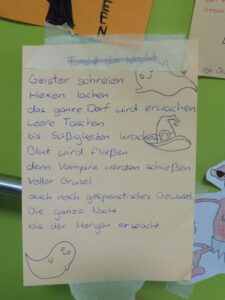 Geister schreien
Hexen lachen
das ganze Dorf wird erwachen
Leere Taschen
bis Süßigkeiten
Blut wird fließen
denn Vampire werden schießen.
Voller Grusel
auch noch gespenstisches Gewusel
Die ganze Nacht
bis der Morgen erwacht